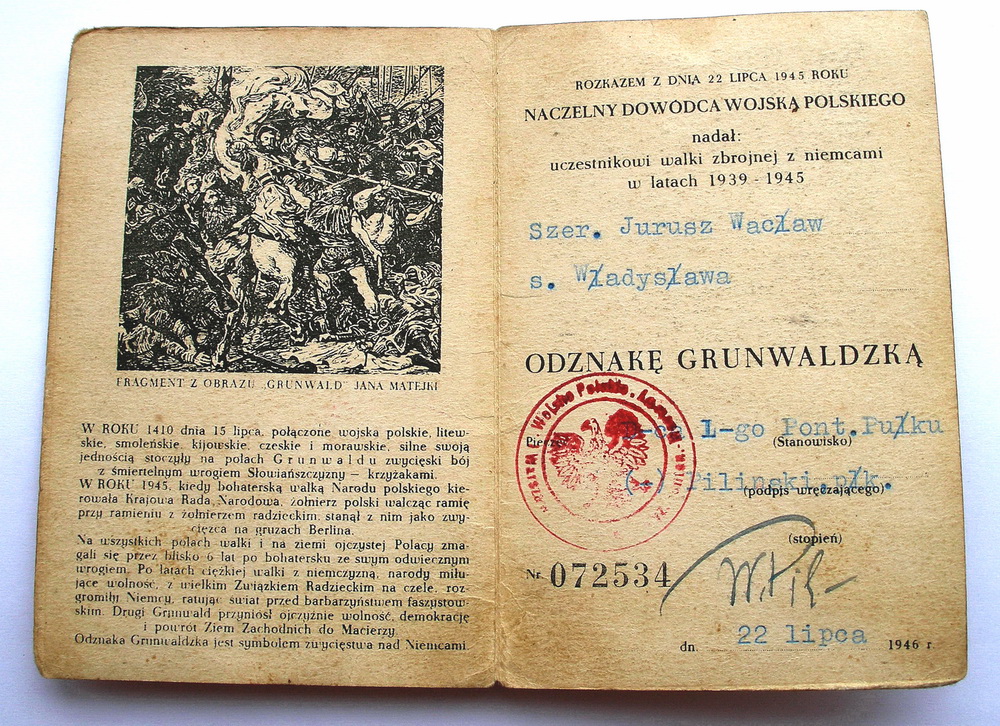 FRAGMENT Z OBRAZU „GRUNWALD" JANA MATEJKI
W ROKU 1410 dnia 15 lipca, połączone wojska polskie, litew-
skie, smoleńskie, kijowskie, czeskie i morawskie, silne swoją
jednością stoczyły na polach Grunwaldu zwycięski bój
z śmiertelnym wrogiem Słowiańszczyzny – krzyżakami.
W ROKU 1945, kiedy bohaterską walką Narodu polskiego kie-
rowała Krajowa Rada Narodowa, żołnierz polski walcząc ramię
przy ramieniu z żołnierzem radzieckim, stanął z nim jako zwy-
cięzca na gruzach Berlina.
Na wszystkich polach walki i na ziemi ojczystej Polacy zma-
gali się przez blisko 6 lat po bohatersku ze swym odwiecznym
wrogiem. Po latach ciężkiej walki z niemczyzną, narody miłu-
jące wolność, z wielkim Związkiem Radzieckim na czele, roz-
gromiły Niemcy, ratując świat przed barbarzyństwem faszystow-
skim. Drugi Grunwald przyniósł ojczyźnie wolność, demokrację
i powrót Ziem Zachodnich do Macierzy.
Odznaka Grunwaldzka jest symbolem zwycięstwa nad Niemcami.
ROZKAZEM Z DNIA 22 LIPCA 1945 ROKU
NACZELNY DOWÓDCA WOJSKA POLSKIEGO
nadał:
uczestnikowi walki zbrojnej z niemcami
w latach 1939 - 1945
Szer. Jurusz Wacław
s. Władysława
ODZNAKĘ GRUNWALDZKĄ
Wojsko Polskie
D-ca 1-go Pont.Pułku
(Stanowisko)
(-) Pilipski.płk.
(podpis wręczającego)
(stopień)
Nr. 072534
dn. 22 lipca 1946 r.